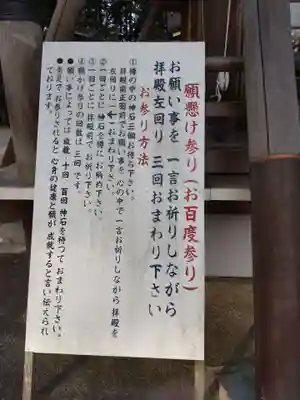 願懸け参り(お百度参り)
お願い事を 一言お祈りしながら
拝殿左回り 三回おまわり下さい
お参り方法
①樽の中の神石三個お持ち下さい。
拝殿前正面前でお願い事を 心の中で一言お祈りしながら 拝殿を
左回りに おまわり下さい。
②一回ごとに 神石を樽に お納め下さい。
③一回ごとに 拝殿前で お祈り下さい。
④願かけ参りの回数は 三回 です。
●願い事によっては 成数 十回 百回 神石を持って おまわり下さい。
●素足で お参りされると 心身の健康と願が 成就すると言い伝えられ
ております。